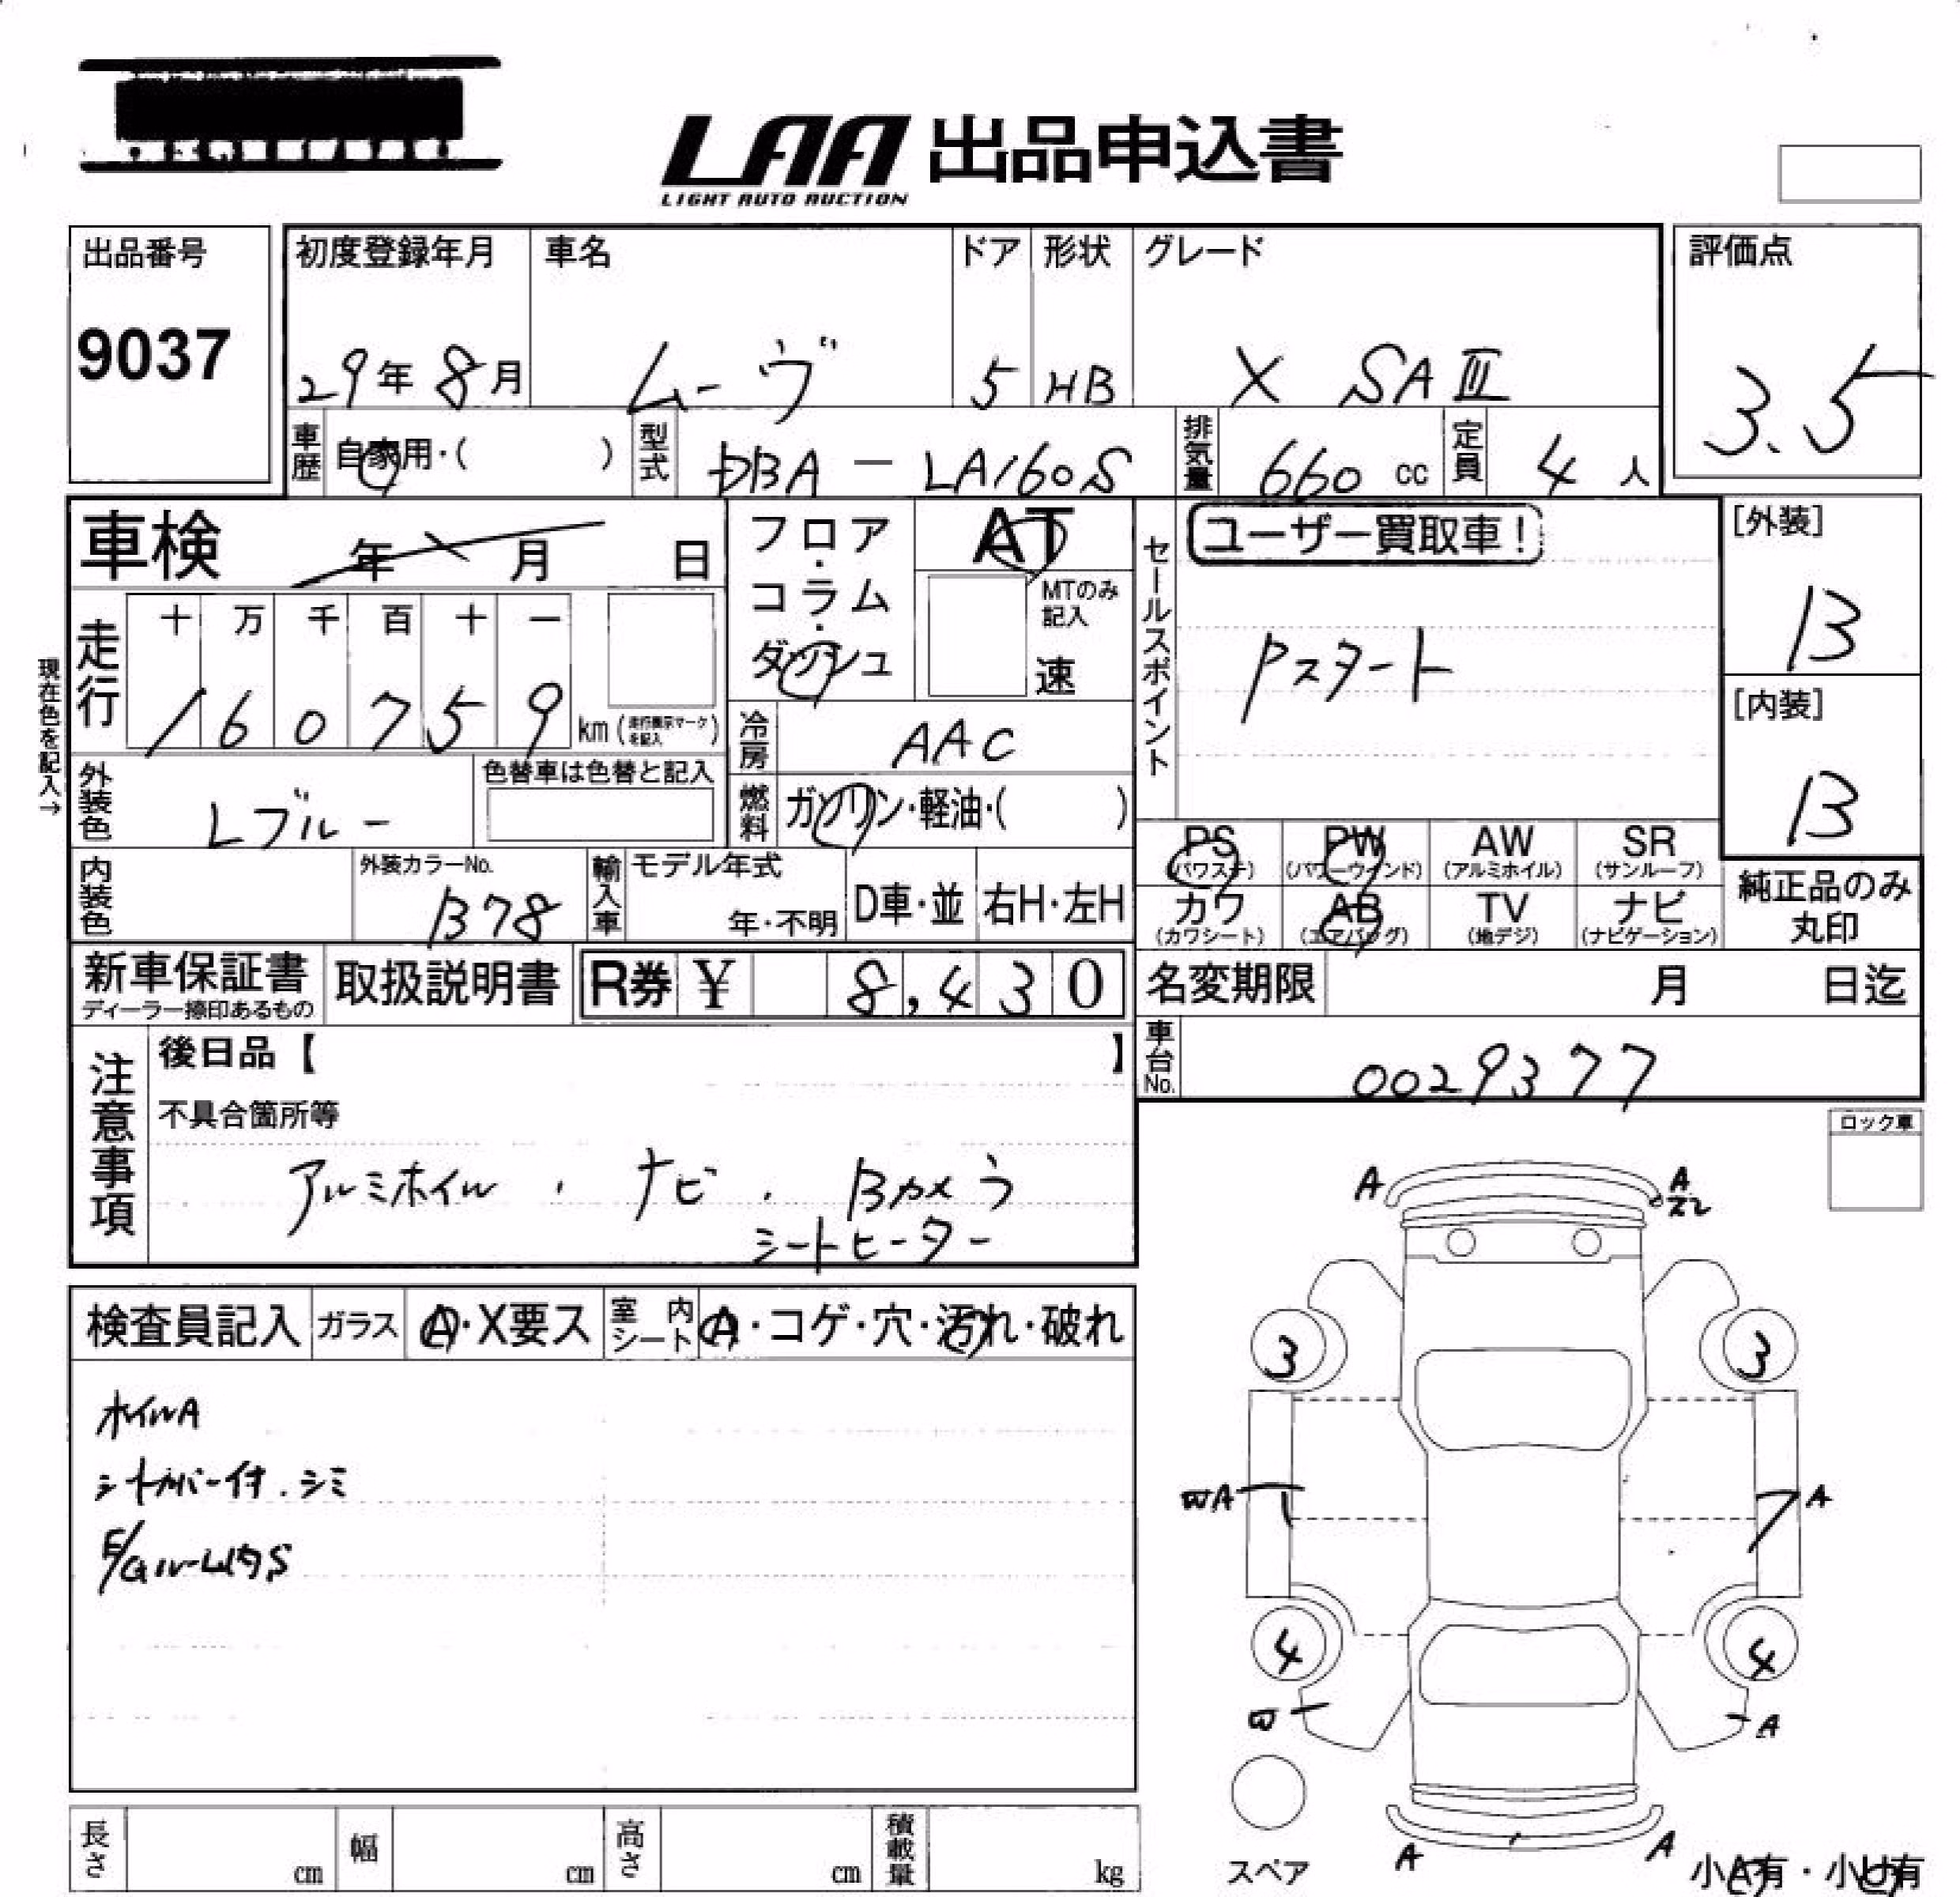 LAA 出品申込書
LIGHT AUTO AUCTION
出品番号
9037
初度登録年月
29年 8月
車名
ムーヴ
ドア
5
形状
HB
グレード
X SAⅢ
評価点
3.5
車歴
自家用・( )
型式
DBA - LA160S
排気量
660 cc
定員
4 人
車検
年 月 日
フロア・コラム・ダッシュ
AT
MTのみ記入
速
セールスポイント
ユーザー買取車!
Pスタート
[外装]
B
[内装]
B
現在色を記入→
走行
十 万 千 百 十 一
1 6 0 7 5 9
km (走行表示マークを記入)
冷房
AAC
外装色
Lブルー
色替車は色替と記入
燃料
ガソリン・軽油・( )
PS (パワステ)
PW (パワーウィンド)
AW (アルミホイル)
SR (サンルーフ)
内装色
外装カラーNo.
B78
輸入車
モデル年式
年・不明
D車・並
右H・左H
カワ (カワシート)
AB (エアバッグ)
TV (地デジ)
ナビ (ナビゲーション)
純正品のみ
丸印
新車保証書
ディーラー捺印あるもの
取扱説明書
R券 ¥ 8,430
名変期限
月 日迄
注意事項
後日品【 】
車台No.
0029377
不具合箇所等
アルミホイル . ナビ . Bカメラ
シートヒーター
ロック車
A A
検査員記入
ガラス
A・X要ス
室内シート
A・コゲ・穴・汚れ・破れ
3 3
ホイルA
シートカバー付.シミ
E/Gルーム内S
WA A
4 4
W A
長さ cm
幅 cm
高さ cm
積載量 kg
スペア
A A
小A有・小U有